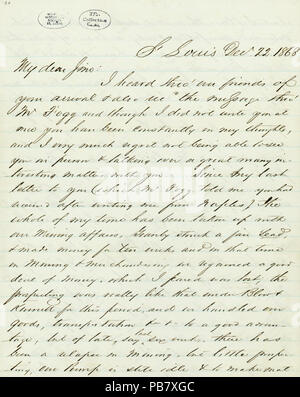 St Louis Dec 22, 1865
My dear Jim:
I heard thro' our friends of
your arrival & also rec the message thro'
Mr Fogg and though I did not write you at
once you have been constantly in my thoughts,
and I very much regret not being able to see
you in person & talking over a great many in-
teresting matters with you. Since my last
letter to you (which Mr Fogg told me you had
received after writing me from Naples) the
whole of my time has been taken up with
our Mining affairs. Granby struck a fine lead
& made money for ten weeks and in that time
in Mining & merchandise we regained a good
deal of money, which I feared was lost, the
prospecting was really like that under Blow &
Kennett for this period, and we handled our
goods, transportation &c &c to a good advan-
tage, but of late, say, six weeks, there has
been a relapse in Mining, but little prospec-
ting, our Pump is still idle & to make mat
a
alamy
Image ID: PB7XGC
www.alamy.com